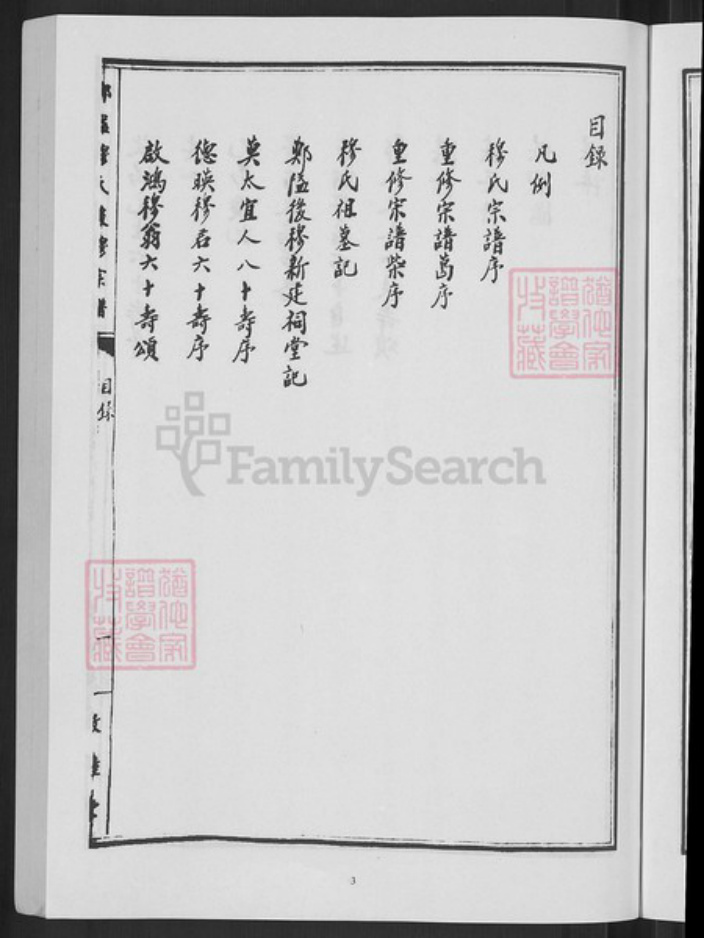 目録
凡例
穆氏宗譜序
重修宗譜萬序
重修宗譜柴序
穆氏祖墓記
鄭隘後穆新建祠堂記
莫太宜人八十壽序
德暎穆君六十壽序
啟鴻穆翁六十壽頌
目錄
一
譜學會
譜學會
FamilySearch
3